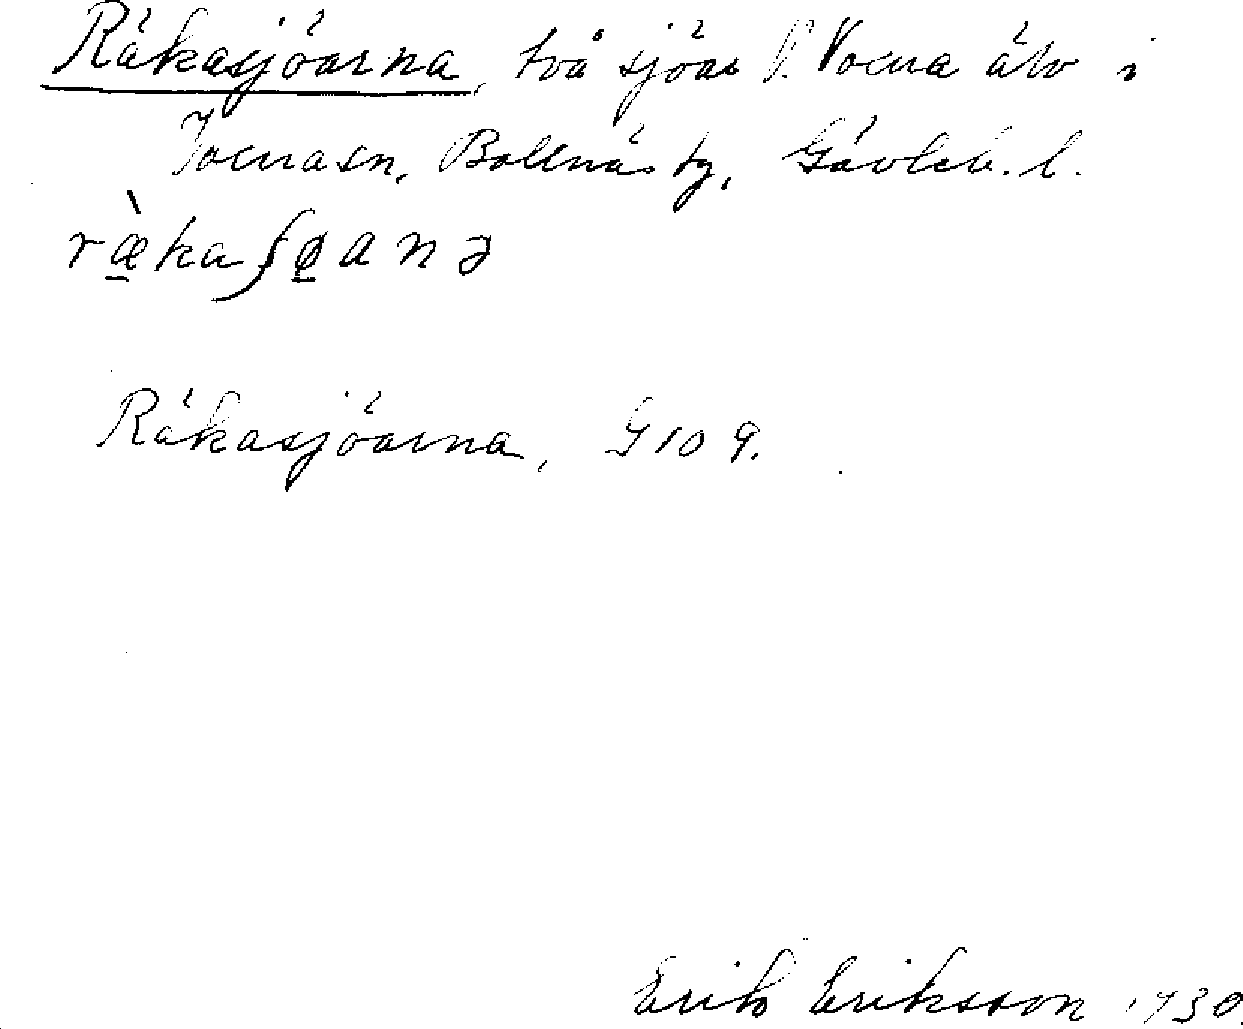 Räkasjöarna, två sjöar i Voxna älv i
Voxna sn, Bollnäs tg, Gävleb. l.
ræ̀kaʃøanə
Räkasjöarna, G 109.
Erik Eriksson 1930.